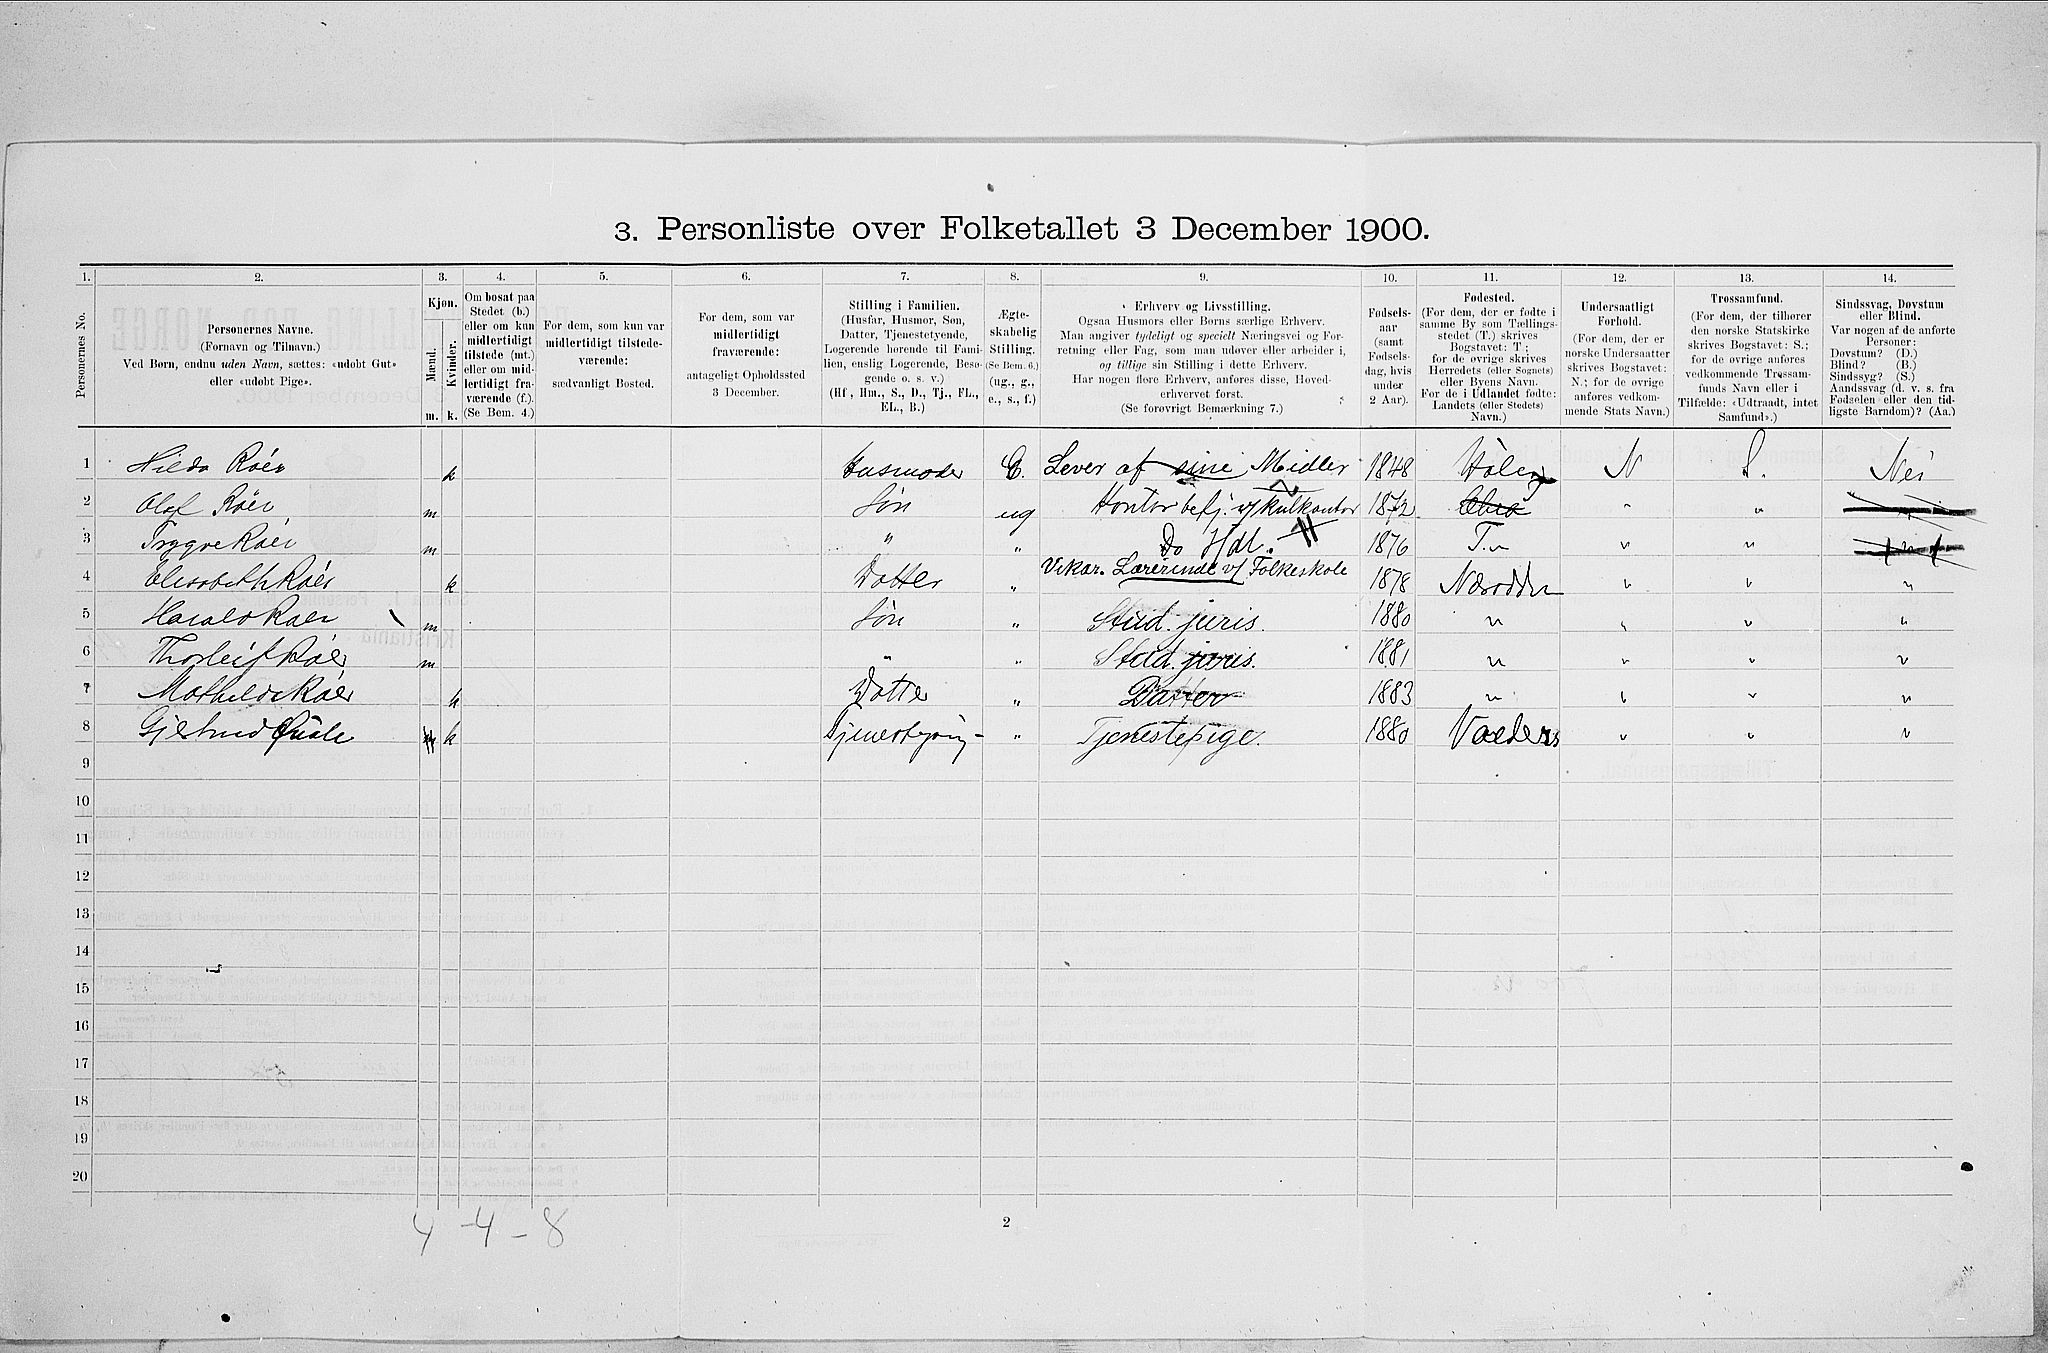 3. Personliste over Folketallet 3 December 1900.
1. 2. 3. 4. 5. 6. 7. 8. 9. 10. 11. 12. 13. 14.
Personernes No.
Personernes Navne.
(Fornavn og Tilnavn.)
Ved Børn, endnu uden Navn, sættes: «udøbt Gut»
eller «udøbt Pige».
Kjøn.
Mænd.
Kvinder.
m. k.
Om bosat paa
Stedet (b.)
eller om kun
midlertidigt
tilstede (mt.)
eller om mid-
lertidigt fra-
værende (f.).
(Se Bem. 4.)
For dem, som kun var
midlertidigt tilstede-
værende:
sædvanligt Bosted.
For dem, som var
midlertidigt
fraværende:
antageligt Opholdssted
3 December.
Stilling i Familien.
(Husfar, Husmor, Søn,
Datter, Tjenestetyende,
Logerende hørende til Fami-
lien, enslig Logerende, Besø-
gende o. s. v.)
(Hf, Hm., S., D., Tj., FL.,
EL., B.)
Ægte-
skabelig
Stilling.
(Se Bem. 6.)
(ug., g.,
e., s., f.)
Erhverv og Livsstilling.
Ogsaa Husmors eller Børns særlige Erhverv.
Man angiver tydeligt og specielt Næringsvei og For-
retning eller Fag, som man udøver eller arbeider i,
og tillige sin Stilling i dette Erhverv.
Har nogen flere Erhverv, anføres disse, Hoved-
erhvervet først.
(Se forøvrigt Bemærkning 7.)
Fødsels-
aar
(samt
Fødsels-
dag, hvis
under
2 Aar).
Fødested.
(For dem, der er fødte i
samme By som Tællings-
stedet (T.) skrives
Bogstavet: T;
for de øvrige skrives
Herredets (eller Sognets)
eller Byens Navn.
For de i Udlandet fødte:
Landets (eller Stedets)
Navn.)
Undersaatligt
Forhold.
(For dem, der er
norske Undersaatter
skrives Bogstavet:
N.; for de øvrige
anføres vedkom-
mende Stats Navn.)
Trossamfund.
(For dem, der tilhører
den norske Statskirke
skrives Bogstavet: S.;
for de øvrige anføres
vedkommende Trossam-
funds Navn eller i
Tilfælde: «Udtraadt, intet
Samfund».)
Sindssvag, Døvstum
eller Blind.
Var nogen af de anførte
Personer:
Døvstum? (D.)
Blind? (B.)
Sindssyg? (S.)
Aandssvag (d. v. s. fra
Fødselen eller den tid-
ligste Barndom)? (Aa.)
1 Hilda Röer k Husmoder E. Lever af sine Midler 1848 Hölen N S. Nei
2 Olaf Röer m Søn ug Kontorbetj. v/ Kulkontor 1872 " " "
3 Trygve Röer m " " Do Hdl. 1876 T. " " "
4 Elisabeth Röer k Datter " Vikar. Lærerinde v/ Folkeskole 1878 Næsodden " " "
5 Harald Röer m Søn " Stud. juris. 1880 " " " "
6 Thorleif Röer m " " Stud. juris. 1881 " " " "
7 Mathilde Röer k Datter " Datter 1883 " " " "
8 Gjertrud Quale k " Tjenestepige. 1880 " " "
9
10
11
12
13
14
15
16
17
18
19
20
4 - 4 - 8
2